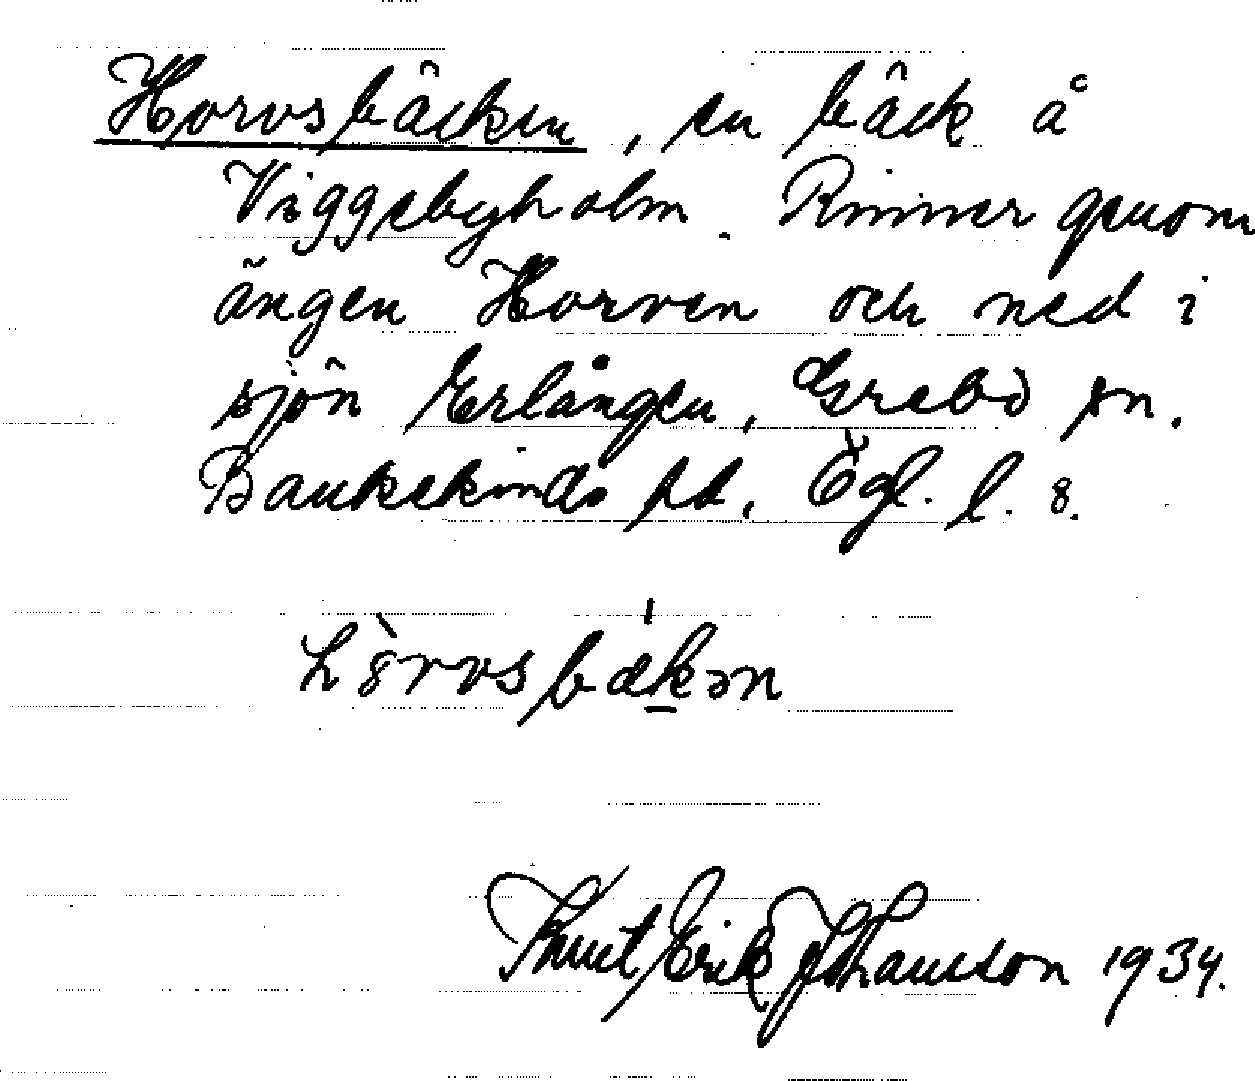 Horvsbäcken, en bäck å
Viggebyholm. Rinner genom
ängen Horven och ned i
sjön Erlången, Grebo sn.
Bankekinds hd, Ögl. l. 8.
hòrvsbækən
Knut Erik Johansson 1934.